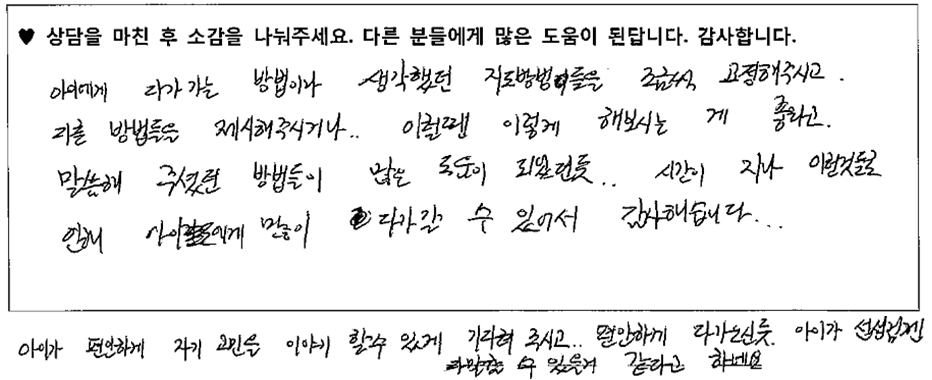 ♥ 상담을 마친 후 소감을 나눠주세요. 다른 분들에게 많은 도움이 된답니다. 감사합니다.
아이에게 다가가는 방법이나 생각했던 지도방법들을 조금씩 교정해주시고.
다른 방법들을 제시해주시거나.. 이럴땐 이렇게 해보시는 게 좋다고.
말씀해 주셨던 방법들이 많은 도움이 되었던듯.. 시간이 지나 이런것들로
인해 아이에게 많이 다가갈 수 있어서 감사해습니다...
아이가 편안하게 자기 고민을 이야기 할수 있게 기다려 주시고.. 편안하게 다가오신듯. 아이가
수 있을거 같다고 하네요